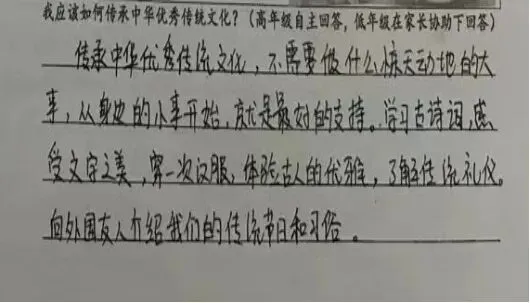 我应该如何传承中华优秀传统文化?(高年级自主回答,低年级在家长协助下回答)
传承中华优秀传统文化,不需要做什么惊天动地的大
事,从身边的小事开始,就是最好的支持。学习古诗词,感
受文字之美,穿一次汉服,体验古人的优雅,了解传统礼仪。
向外国友人介绍我们的传统节日和习俗。